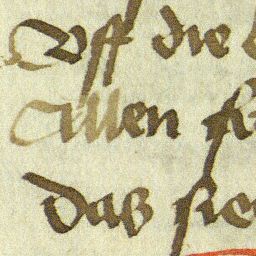 Vff die
Allen
das sie